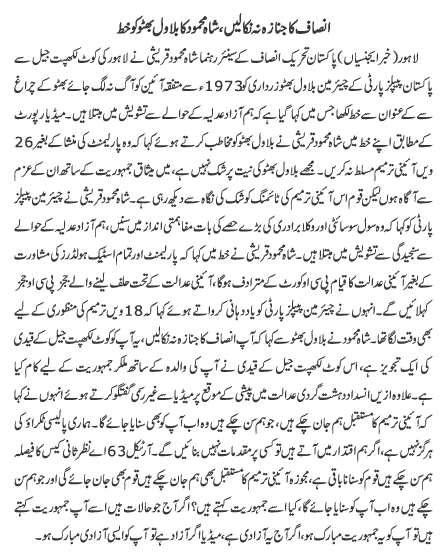 انصاف کا جنازہ نہ نکالیں، شاہ محمود کا بلاول بھٹو کو خط
لاہور (خبر ایجنسیاں) پاکستان تحریک انصاف کے سینئر رہنما شاہ محمود قریشی نے لاہور کی کوٹ لکھپت جیل سے
پاکستان پیپلز پارٹی کے چیئرمین بلاول بھٹو زرداری کو 1973ء سے متفقہ آئین کو آگ نہ لگ جائے بھٹو کے چراغ
سے کے عنوان سے خط لکھا جس میں کہا گیا ہے کہ ہم آزاد عدلیہ کے حوالے سے تشویش میں مبتلا ہیں۔ میڈیا رپورٹ
کے مطابق اپنے خط میں شاہ محمود قریشی نے بلاول بھٹو کو مخاطب کرتے ہوئے کہا کہ وہ پارلیمنٹ کی منشا کے بغیر 26
ویں آئینی ترمیم مسلط نہ کریں۔ مجھے بلاول بھٹو کی نیت پر شک نہیں ہے، میں میثاق جمہوریت کے ساتھ ان کے عزم
سے آگاہ ہوں لیکن قوم اس آئینی ترمیم کی ٹائمنگ کو شک کی نگاہ سے دیکھ رہی ہے۔ شاہ محمود قریشی نے چیئرمین پیپلز
پارٹی کو کہا کہ وہ سول سوسائٹی اور وکلا برادری کی بڑے حصے کی بات مفاہمتی انداز میں سنیں، ہم آزاد عدلیہ کے حوالے
سے سنجیدگی سے تشویش میں مبتلا ہیں۔ شاہ محمود قریشی نے خط میں کہا کہ پارلیمنٹ اور تمام اسٹیک ہولڈرز کی مشاورت
کے بغیر آئینی عدالت کا قیام پی سی او کورٹ کے مترادف ہوگا، آئینی عدالت کے تحت حلف لینے والے ججز پی سی او ججز
کہلائیں گے۔ انہوں نے چیئرمین پیپلز پارٹی کو یاد دہانی کرواتے ہوئے کہا کہ 18 ویں ترمیم کی منظوری کے لیے
بھی وقت لگا تھا۔ شاہ محمود نے بلاول بھٹو سے کہا کہ آپ انصاف کا جنازہ نہ نکالیں، یہ آپ کو کوٹ لکھپت جیل کے قیدی
کی ایک تجویز ہے، اس کوٹ لکھپت جیل کے قیدی نے آپ کی والدہ کے ساتھ ملکر جمہوریت کے لیے کام کیا
ہے۔ علاوہ ازیں انسداد دہشت گردی عدالت میں پیشی کے موقع پر میڈیا سے غیر رسمی گفتگو کرتے ہوئے انہوں نے کہا
کہ آئینی ترمیم کا مستقبل ہم جان چکے ہیں، جو ہم سن چکے ہیں وہ اب آپ کو بھی سنایا جائے گا۔ ہماری پالیسی ٹکراؤ کی
ہرگز نہیں ہے، اگر ہم اقتدار میں آتے ہیں تو کسی پر مقدمات نہیں بنائیں گے۔ آرٹیکل 63 اے نظر ثانی کیس کا فیصلہ
ہم سن چکے ہیں قوم کو سنانا باقی ہے، مجوزہ آئینی ترمیم کا مستقبل بھی ہم جان چکے ہیں قوم بھی جان جائے گی اور جو ہم سن
چکے ہیں وہ اب آپ کو سنایا جائے گا، کیا اسے جمہوریت کہتے ہیں؟ اگر آج جو حالات ہیں اسے آپ جمہوریت کہتے
ہیں تو آپ کو یہ جمہوریت مبارک ہو، اگر آج یہ آزادی ہے، میڈیا اگر آزاد ہے تو آپ کو ایسی آزادی مبارک ہو۔